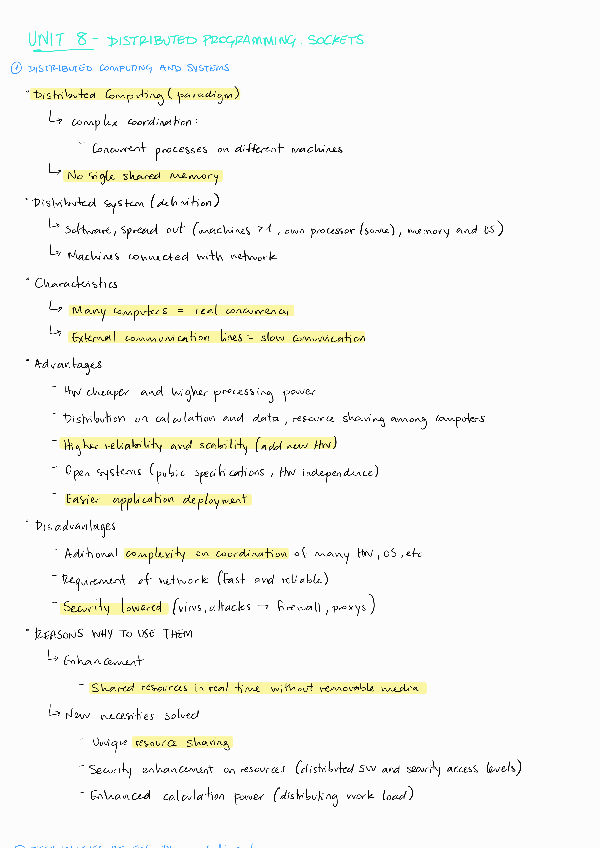 UNIT 8 - DISTRIBUTED PROGRAMMING. SOCKETS
① DISTRIBUTED COMPUTING AND SYSTEMS
- Distributed Computing (paradigm)
↳ complex coordination:
- Concurrent processes on different machines
↳ No single shared memory
- Distributed system (definition)
↳ Software, spread out (machines >1, own processor (some), memory and OS)
↳ Machines connected with network
- Characteristics
↳ Many computers = real concurrency
↳ External communication lines = slow comunication
- Advantages
- HW cheaper and higher processing power
- Distribution on calculation and data, resource sharing among computers
- Higher reliability and scability (add new HW)
- Open systems (pubic specifications, HW independence)
- Easier application deployment
- Disadvantages
- Aditional complexity on coordination of many HW, OS, etc
- Requirement of network (fast and reliable)
- Security lowered (virus, attacks → firewall, proxys)
- REASONS WHY TO USE THEM
↳ Enhancement
- Shared resources in real time without removable media
↳ New necesities solved
- Unique resource sharing
- Security enhancement on resources (distributed SW and security access levels)
- Enhanced calculation power (distributing work load)